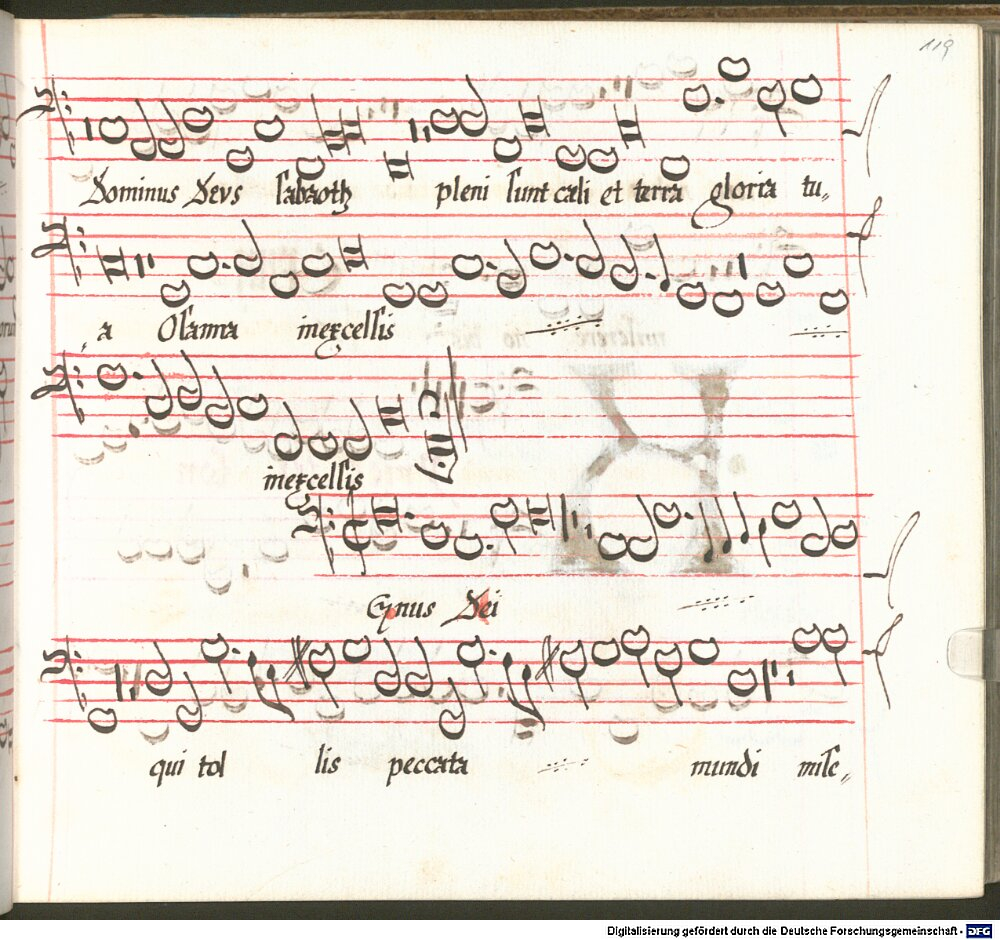 119
Dominus Deus sabaoth pleni sunt cæli et terra gloria tu„
„a Osanna inexcelsis
inexcelsis
Gnus Dei
qui tol lis peccata mundi mise„
Digitalisierung gefördert durch die Deutsche Forschungsgemeinschaft - DFG